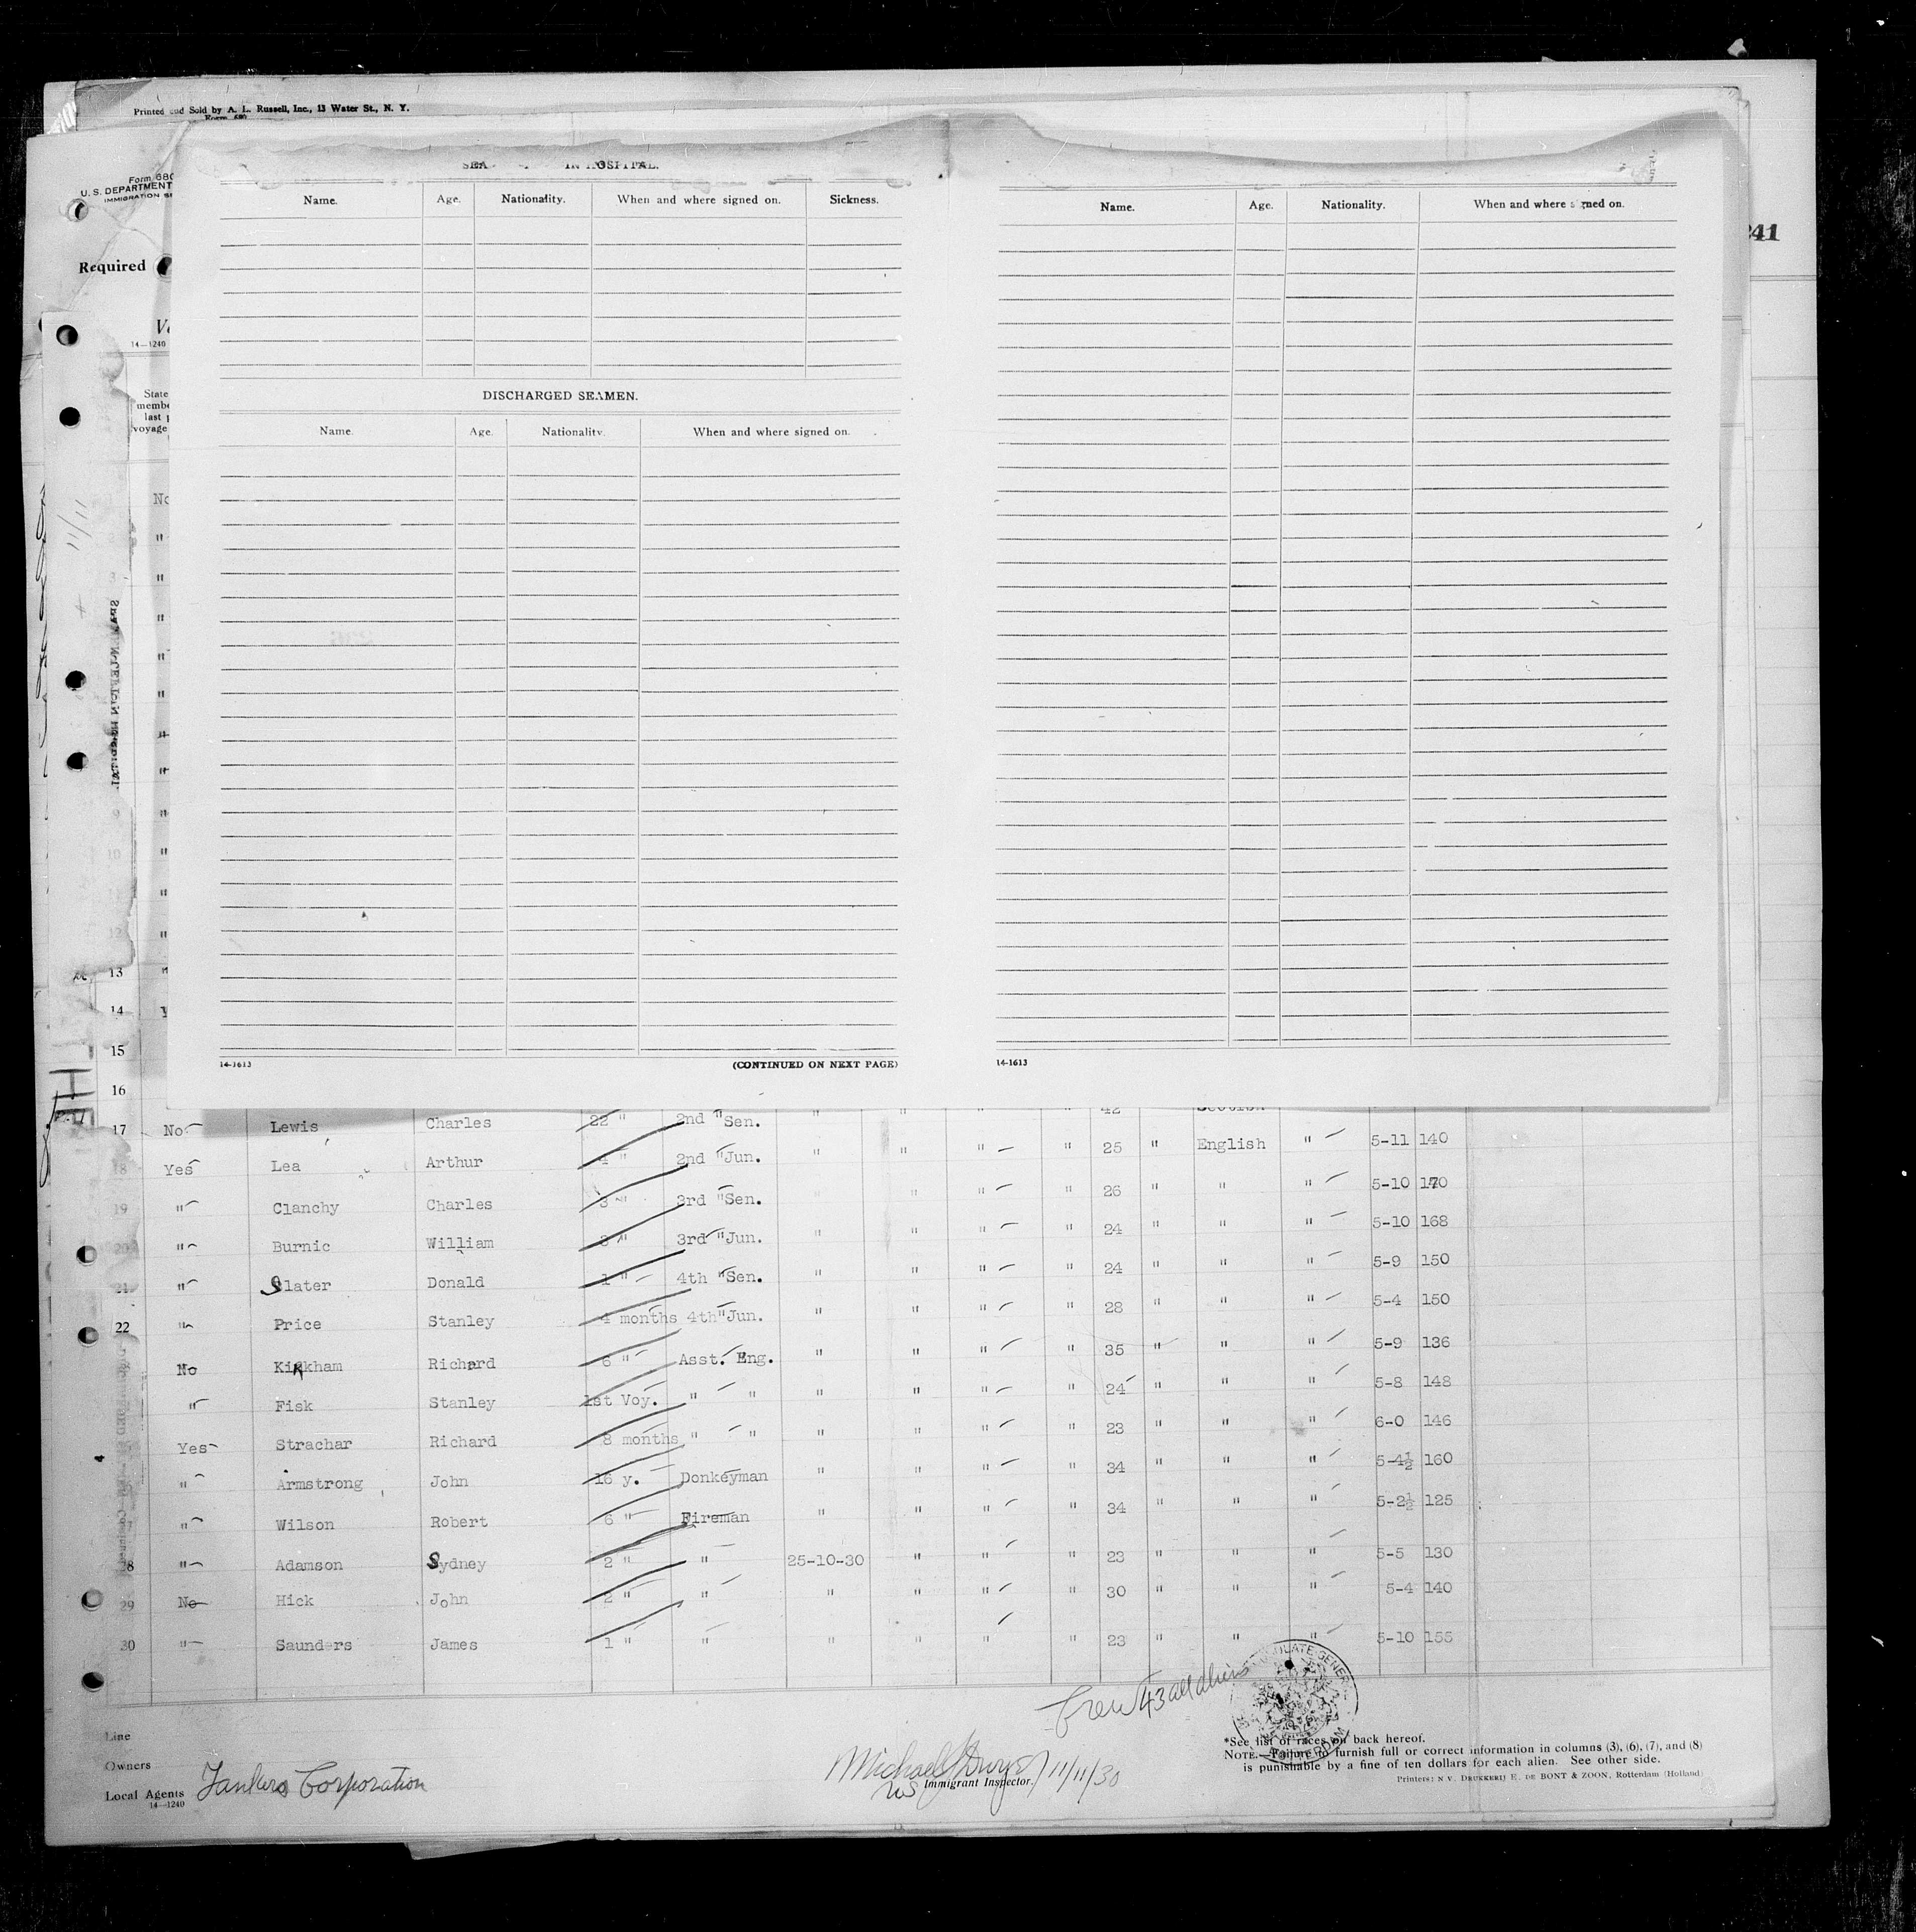 Printed and Sold by A. L. Russell, Inc., 13 Water St., N. Y.
Form 680
U. S. DEPARTMENT
IMMIGRATION
241
Required
14—1240
State
last
voyage
11/11
IN HOSPITAL.
Name. Age. Nationality. When and where signed on. Sickness.
DISCHARGED SEAMEN.
Name. Age. Nationality. When and where signed on.
14-1613 (CONTINUED ON NEXT PAGE)
Name. Age. Nationality. When and where signed on.
14-1613
13
14
15
16
17 No Lewis Charles 22 " 2nd " Sen. " " " " 42 Scotish
18 Yes Lea Arthur 4 " 2nd " Jun. " " " " 25 " English " 5-11 140
19 " Clanchy Charles 3 " 3rd " Sen. " " " " 26 " " " 5-10 170
20 " Burnic William 3 " 3rd " Jun. " " " " 24 " " " 5-10 168
21 " Slater Donald 1 " 4th " Sen. " " " " 24 " " " 5-9 150
22 " Price Stanley 4 months 4th " Jun. " " " " 28 " " " 5-4 150
No Kirkham Richard 6 " Asst. Eng. " " " " 35 " " " 5-9 136
" Fisk Stanley 1st Voy. " " " " " " 24 " " " 5-8 148
Yes Strachar Richard 8 months " " " " " " 23 " " " 6-0 146
" Armstrong John 16 y. Donkeyman " " " " 34 " " " 5-4½ 160
" Wilson Robert 6 " Fireman " " " " 34 " " " 5-2½ 125
28 " Adamson Sydney 2 " " 25-10-30 " " " 23 " " " 5-5 130
29 No Hick John 2 " " " " " " 30 " " " 5-4 140
30 " Saunders James 1 " " " " " " 23 " " " 5-10 155
Crew 43 all aliens
Line
Owners
Local Agents Tankers Corporation
14—1240
Michael 11/11/30
US Immigrant Inspector.
*See list of races on back hereof.
NOTE.—Failure to furnish full or correct information in columns (3), (6), (7), and (8)
is punishable by a fine of ten dollars for each alien. See other side.
Printers: N V. DRUKKERIJ E. DE BONT & ZOON, Rotterdam (Holland)